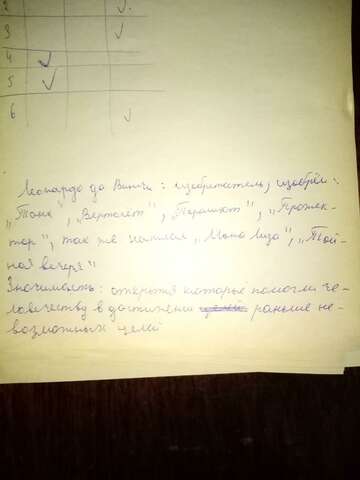 2 ✓
3 ✓
4 ✓
5 ✓
6 ✓
Леонардо да Винчи: изобретатель, изобрёл:
„Танк", „Вертолёт", „Парашют", „Прожек-
тор", так же написал „Мона Лиза", „Тай-
ная вечеря"
Значимость: открытия которые помогли че-
ловечеству в достижении раньше не-
возможных целей